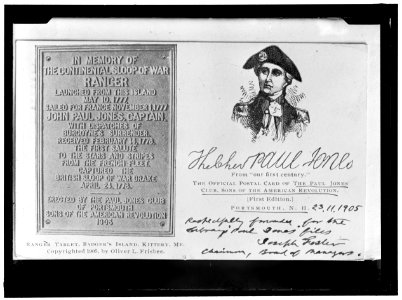 IN MEMORY OF
THE CONTINENTAL SLOOP OF WAR
RANGER
LAUNCHED FROM THIS ISLAND
MAY 10, 1777
SAILED FOR FRANCE NOVEMBER 1, 1777
JOHN PAUL JONES, CAPTAIN,
WITH DISPATCHES OF
BURGOYNE'S SURRENDER.
RECEIVED FEBRUARY 14, 1778.
THE FIRST SALUTE
TO THE STARS AND STRIPES
FROM THE FRENCH FLEET.
CAPTURED THE
BRITISH SLOOP OF WAR DRAKE
APRIL 24, 1778.
ERECTED BY THE PAUL JONES CLUB
OF PORTSMOUTH
SONS OF THE AMERICAN REVOLUTION
1905
RANGER TABLET, BADGER'S ISLAND, KITTERY, ME.
Copyrighted 1905, by Oliver L. Frisbee.
PAUL JONES
From "our first century."
THE OFFICIAL POSTAL CARD OF THE PAUL JONES
CLUB, SONS OF THE AMERICAN REVOLUTION.
[First Edition.]
PORTSMOUTH, N. H. 23, 11, 1905
Respectfully forwarded for the
Library Paul Jones files
Joseph Foster
Chairman, Board of Managers.